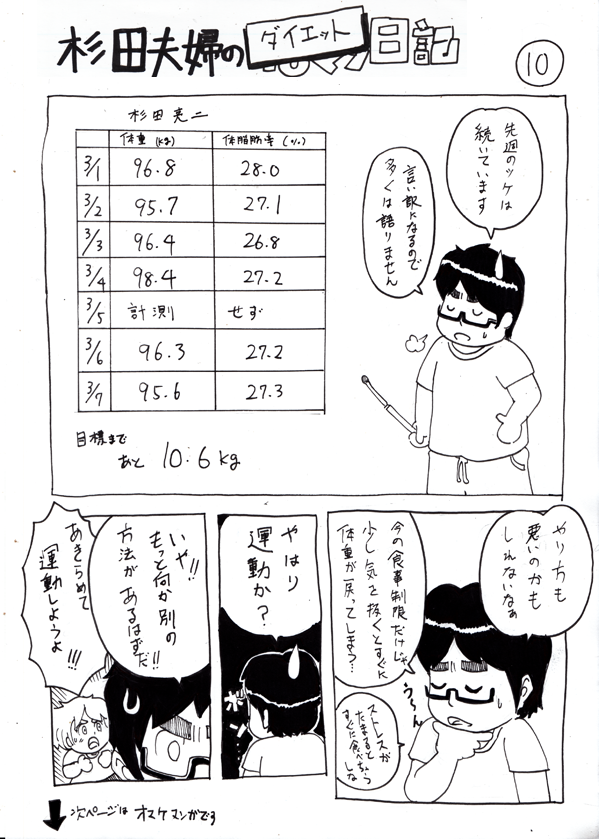 杉田夫婦の
ダイエット
日記
10
杉田亮二
体重(kg) 体脂肪率(%)
3/1 96.8 28.0
3/2 95.7 27.1
3/3 96.4 26.8
3/4 98.4 27.2
3/5 計測 せず
3/6 96.3 27.2
3/7 95.6 27.3
目標まで
あと 10.6kg
先週のツケは
続いています
言い訳になるので
多くは語りません
やり方も
悪いのかも
しれないなぁ
今の食事制限だけじゃ
少し気を抜くとすぐに
体重が戻ってしまう?
う〜ん
ストレスが
たまると
すぐに食べちゃう
しな
やはり
運動か?
いや!!
もっと何か別の
方法が
あるはずだ!!
あきらめて
運動しようよ
!!!
次ページは オマケマンガです